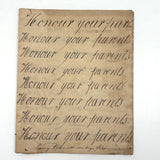 Honour your paren
Honour your parents
Honour your parents.
Honour your parents.
Honour your parents.
Honour your parents.
Honour your parents.
Honour your parents.